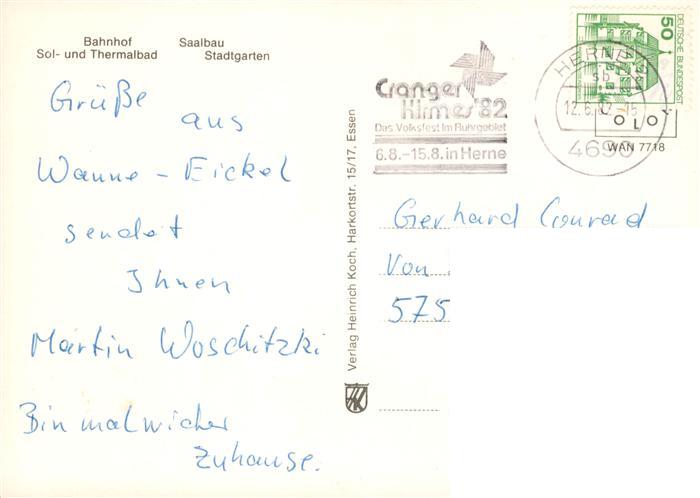 Bahnhof Saalbau
Sol- und Thermalbad Stadtgarten
Grüße
aus
Wanne-Eickel
sendet
Ihnen
Martin Woschitzki
Bin mal wicher
zuhause.
Verlag Heinrich Koch, Harkortstr. 15/17, Essen
Cranger
Kirmes '82
Das Volksfest im Ruhrgebiet
6.8.–15.8. in Herne
HERNE
sb
12.6.82-15
4690
50
DEUTSCHE BUNDESPOST
COLOR
WAN 7718
Gerhard Conrad
Von
575